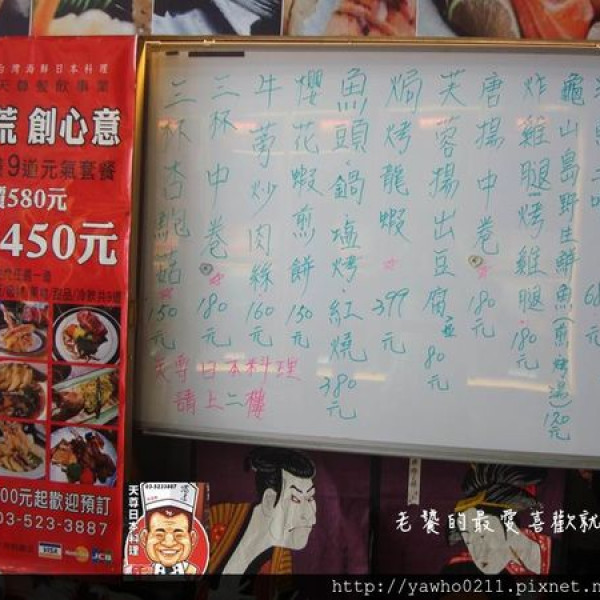 台灣海鮮日本料理
天尊餐飲事業
荒 創心意
9道元氣套餐
580元
450元
00元起歡迎預訂
03-523-3887
VISA
JCB
龜山島野生鮮魚(煎.烤.湯)120元
炸雞腿.烤雞腿.180元
唐揚中卷 180元
芙蓉揚出豆腐 80元
焗烤龍蝦 399元
魚頭.鍋.塩烤.紅燒 380元
櫻花蝦煎餅 150元
牛蒡炒肉絲 160元
三杯中卷 180元
三杯杏鮑菇 150元
天尊日本料理
請上二樓
03-5233887
天尊日本料理
老饕的最愛喜歡就
http://yawho0211.pixnet.n